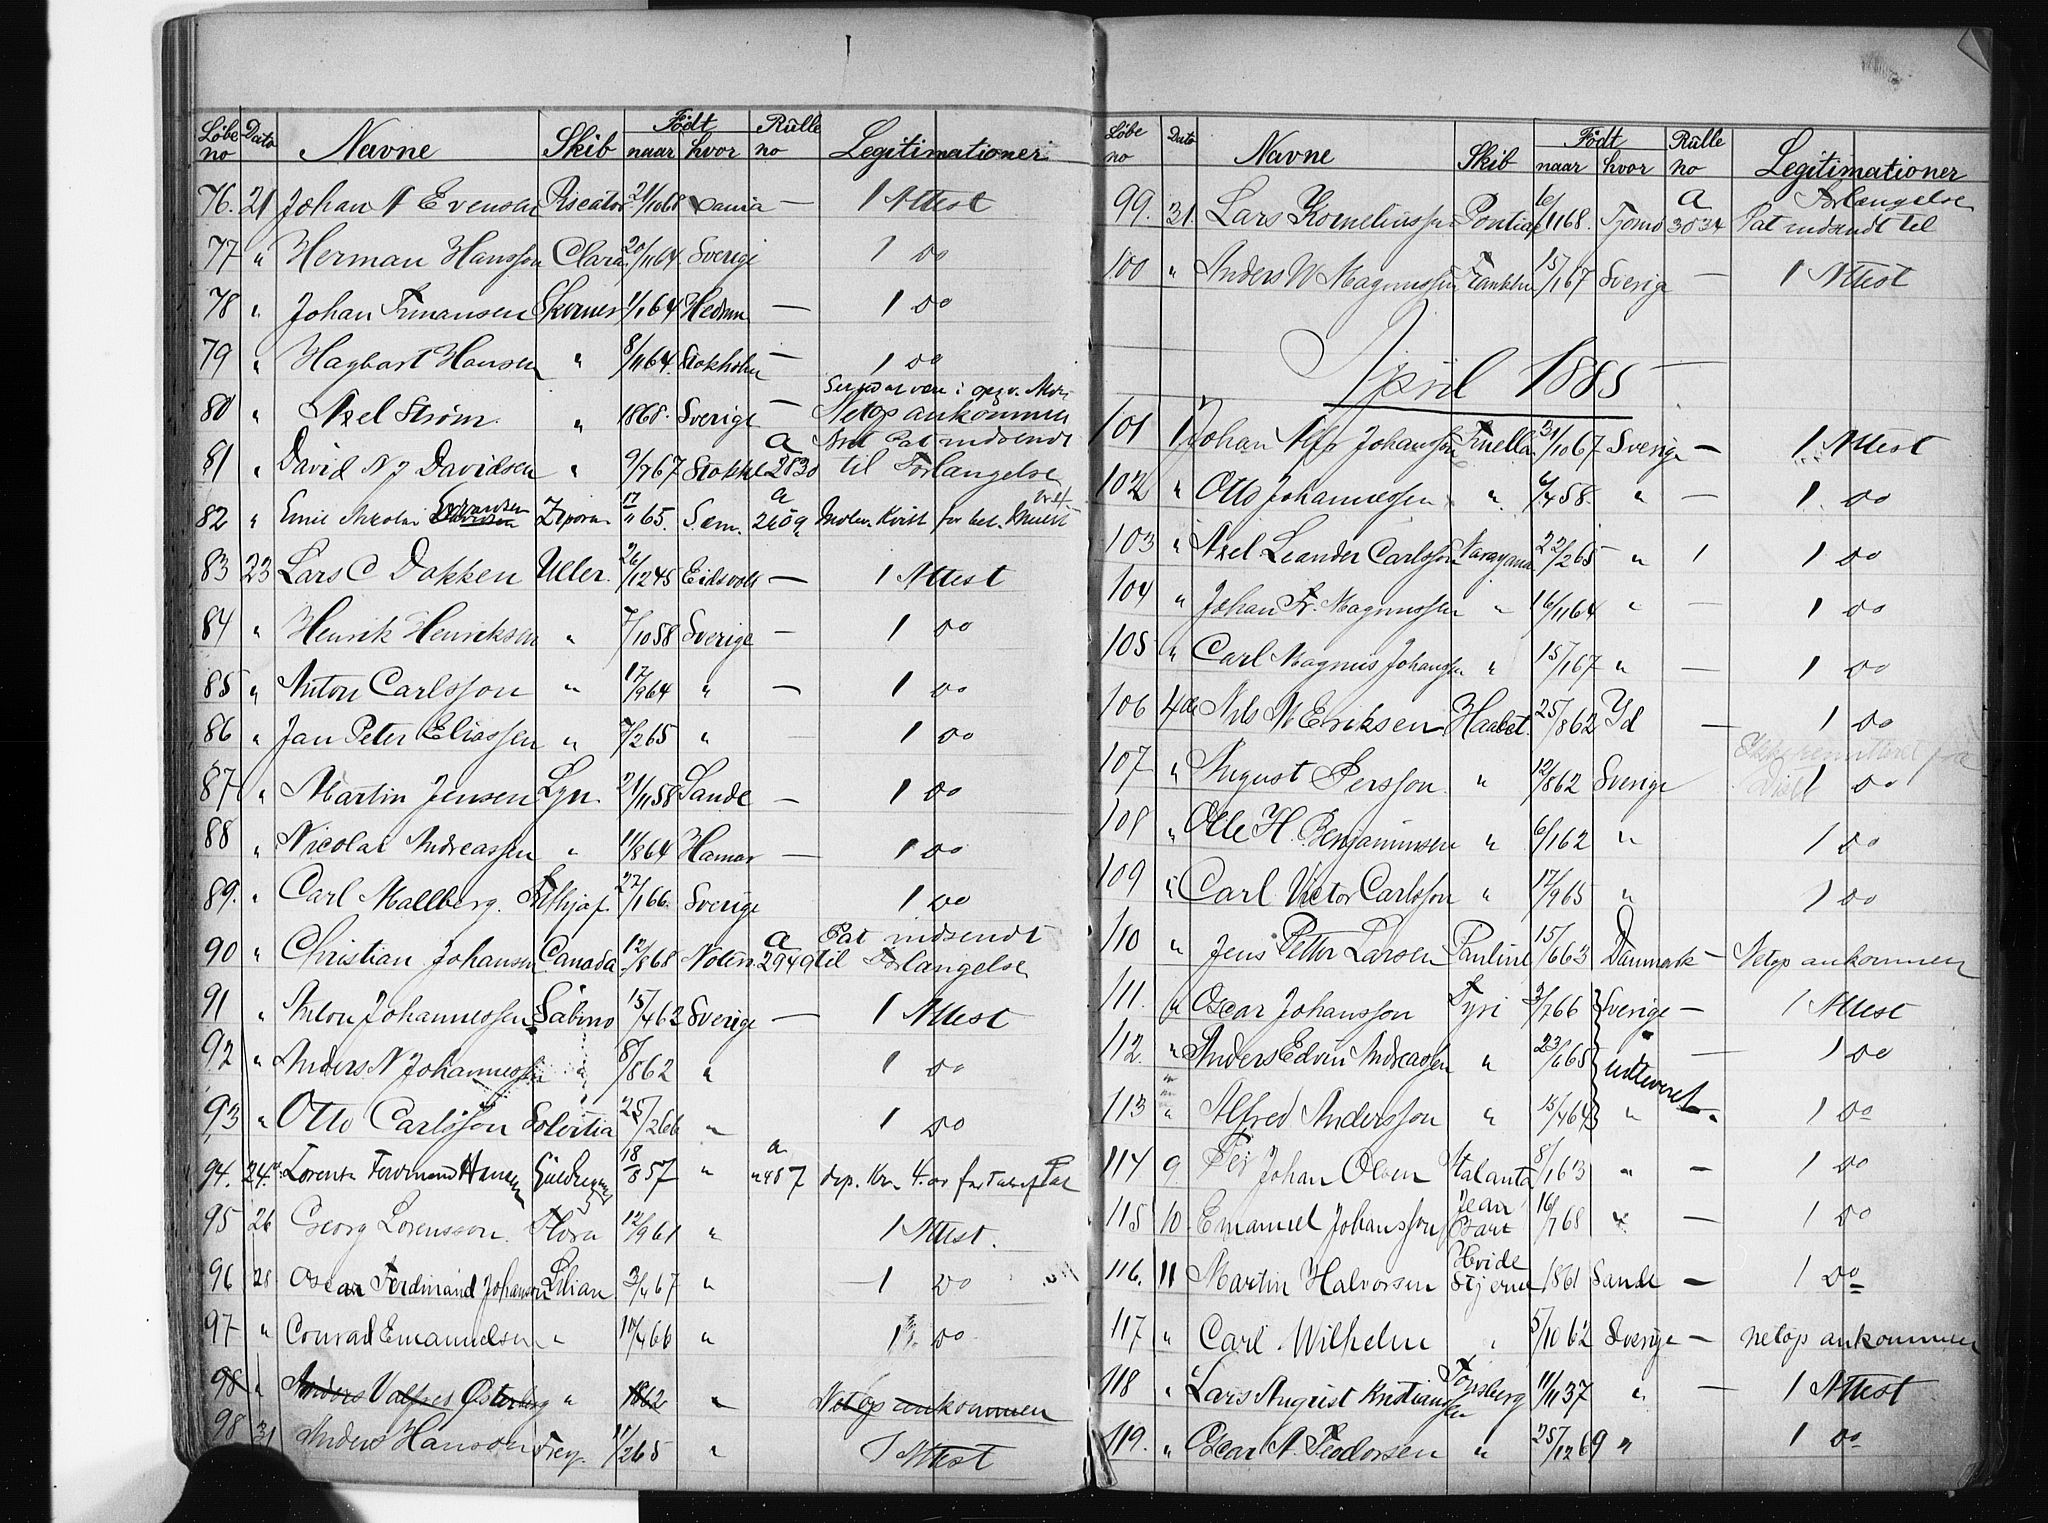 Løbe no Dato Navne Skib Født naar hvor Rulle no Legitimationer
76. 21 Johan A Evensen Piscator 21/10 68 — 1 Attest
77 " Herman Hansson Clara 20/11 64. Sverige 1 do
78 " Johan Skirner 1/1 64 Hedrum — 1 do
79 " Hagbart Hansen " 8/11 64. Stokholm — 1 do
80 " Axel Strøm " 1868. Sverige — Netop ankommen
81 " David N J Davidsen " 9/7 67 Stokke a 2830 Pat indsendt til Forlangelse
82 " Emil Nicolai Zipora 17/11 65. Sem. a
83 23 Lars C Dokken Uller. 26/12 45 Eidsvold — 1 Attest
84 " Henrik Henriksen " 7/10 58 Sverige — 1 do
85 " Anton Carlsson " 17/9 64 " — 1 do
86 " Jan Peter Eliassen " 7/2 65 " — 1 do
87 " Martin Jensen Lyn. 21/11 58 Sande — 1 do
88 " Nicolai Andreassen " 11/8 64 Hamar — 1 do
89. " Carl Mallberg. Frithjof. 27/1 66. Sverige 1 do
90 " Christian Johansen Canada 12/8 68 Noterø a 2949 Pat indsendt til Forlangelse
91 " Anton Johannessen Sabino 15/4 62 Sverige — 1 Attest
92 " Anders N Johannessen " 8/8 62 " 1 do
93 " Otto Carlsson Solertia 25/2 66 " 1 do
94. 24. Lorents Ferdinand Hansen 18/8 57 " a dep. Kr. 4.
95 26 Georg Lorensson. Flora 12/9 61 " 1 Attest.
96 28 Oscar Ferdinand Johanson Lilian 3/4 67 " — 1 do
97 " Conrad Emanuelsen " 11/4 66 " 1 do
98 " Anders Valfred Østerberg " 1862 " Netop ankommen
98 31 Anders Hanson Frey. 11/2 65 " 1 Attest
Løbe no Dato Navne Skib Født naar hvor Rulle no Legitimationer
99. 31. Lars Korneliussen Pontiac 6/11 68. Tjømø a 3034 Forlængelse Pat indsendt til
100 " Anders W Magnussen Franklin 15/1 67 Sverige — 1 Attest
April 1885
101 1 Johan Alfr Johansson Fruella 31/10 67 Sverige — 1 Attest
102 " Otto Johannessen " 6/4 58. " — 1. do
103 " Axel Leander Carlsson Narayana 22/2 65 " 1 1 do
104 " Johan Fr. Magnussen " 16/11 64 " — 1 do
105 " Carl Magnus Johanssen " 15/1 67 " — 1 do
106 4de Nils N Eriksen Haabet. 25/8 62 Id — 1 do
107 " August Persson. " 12/8 62 Sverige 1 do
108 " Olle H. Benjaminsen " 6/1 62 " 1 do
109 " Carl Victor Carlsson " 17/9 65 " 1 do
110 " Jens Petter Larsen Pauline 15/6 63 Danmark — Netop ankommen
111. " Oscar Johansson Fyri 3/7 66 Sverige — 1 Attest
112. " Anders Edvin Andreassen " 23/6 65 — 1 do
113 " Alfred Andersson " 15/4 64 " 1 do
114 9. Per Johan Olsen Atalanta 8/1 63 " — 1 do
115 10. Emanuel Johansson Jean Bart 16/7 68 " — 1 do
116. 11 Martin Halvorsen Hvide Stjerne 1861 Sande — 1 do
117 " Carl Wilhelm " 5/10 62 Sverige — netop ankommen
118 " Lars August Kristianssen Tønsberg 11/11 37 " — 1 Attest
119. " Oscar A. Teodorsen " 25/12 69 " 1 do